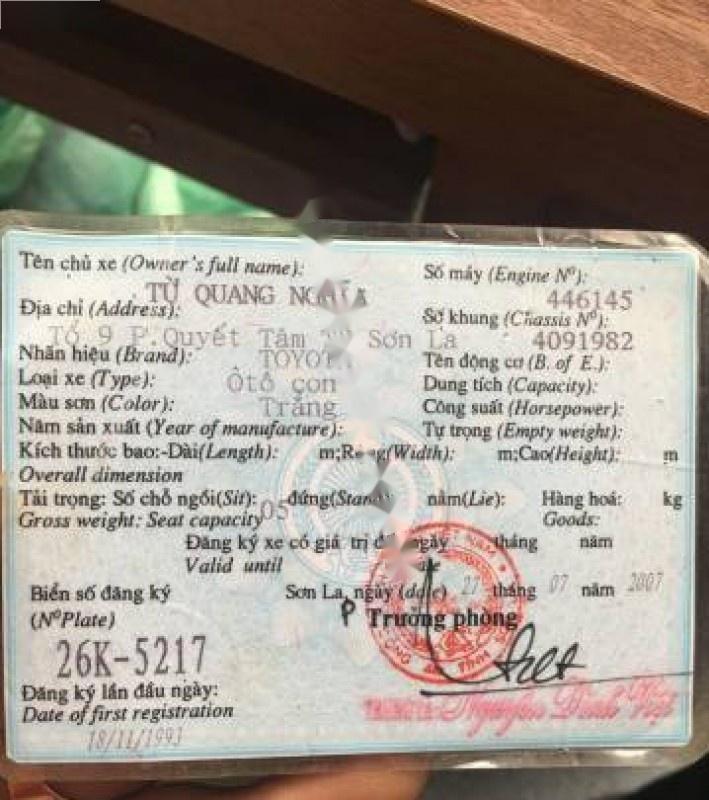 Tên chủ xe (Owner's full name):
TỪ QUANG NGHĨA
Địa chỉ (Address):
Tổ 9 P.Quyết Tâm Sơn La
Nhãn hiệu (Brand): TOYOTA
Loại xe (Type): Ôtô con
Màu sơn (Color): Trắng
Năm sản xuất (Year of manufacture):
Số máy (Engine Nº):
446145
Số khung (Chassis Nº):
4091982
Tên động cơ (B. of E.):
Dung tích (Capacity):
Công suất (Horsepower):
Tự trọng (Empty weight):
Kích thước bao:-Dài(Length): m;Rộng(Width): m;Cao(Height): m
Overall dimension
Tải trọng: Số chỗ ngồi(Sit): 05 đứng(Stand): nằm(Lie): Hàng hoá: kg
Gross weight: Seat capacity Goods:
Đăng ký xe có giá trị đến ngày tháng năm
Valid until
Biển số đăng ký
(NºPlate)
26K-5217
Đăng ký lần đầu ngày:
Date of first registration
18/11/1993
Sơn La, ngày (date) 27 tháng 07 năm 2007
P Trưởng phòng
Nguyễn Đình